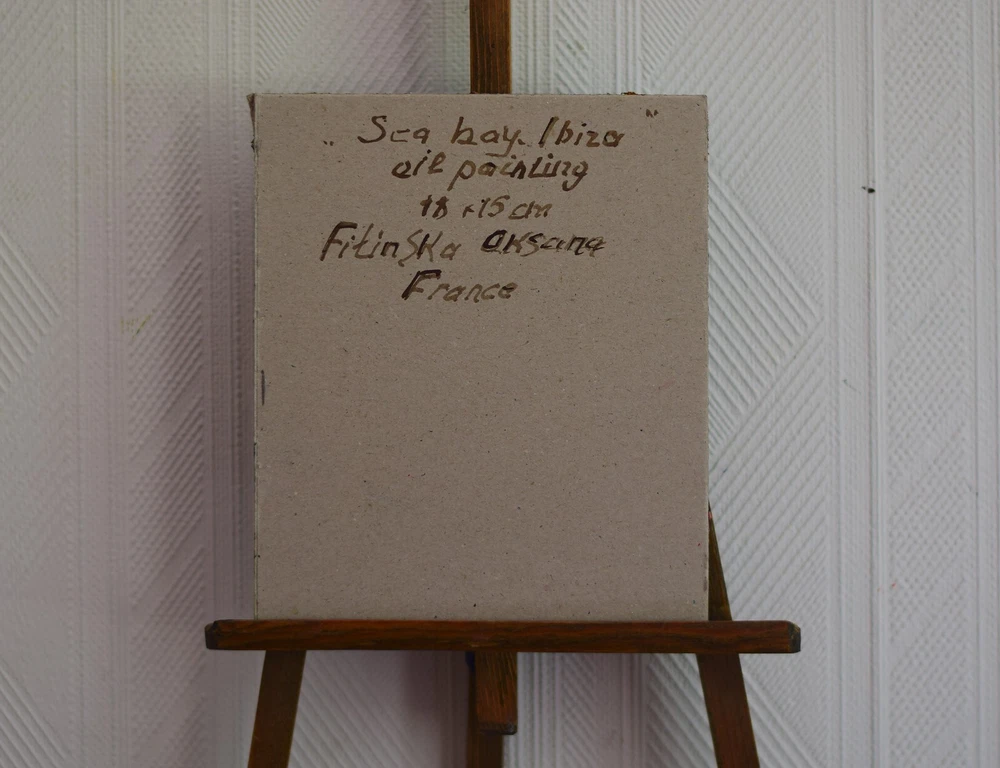 „ Sea bay. Ibiza "
oil painting
18 x15 cm
Filinska Oksana
France